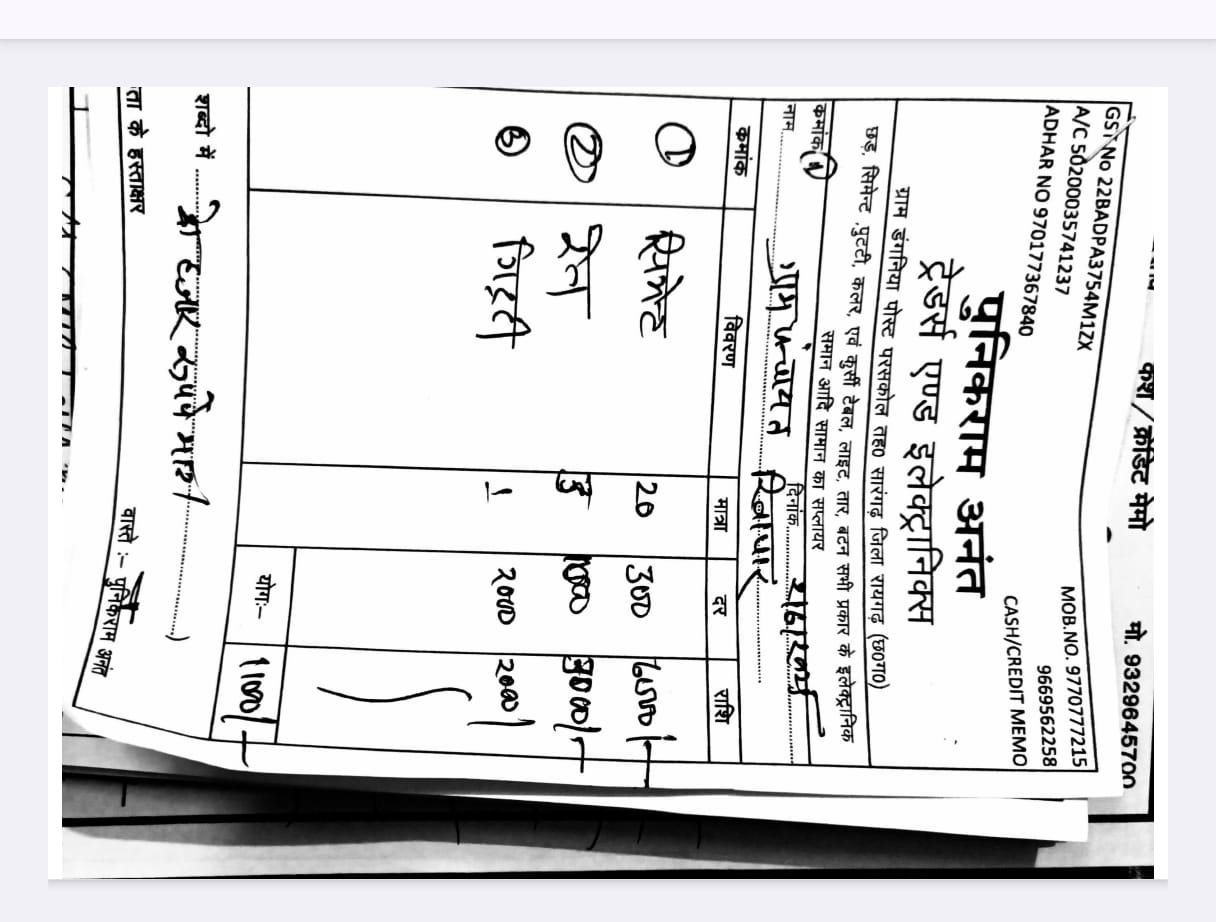 कैश / क्रेडिट मेमो
मो. 9329645700
GST No 22BADPA3754M1ZX
MOB.NO. 9770777215
A/C 50200035741237
9669562258
ADHAR NO 970177367840
CASH/CREDIT MEMO
पुनिकराम अनंत
ट्रेडर्स एण्ड इलेक्ट्रानिक्स
ग्राम डंगनिया पोस्ट परसकोल तह0 सारंगढ़ जिला रायगढ़ (छ0ग0)
छड़, सिमेन्ट ,पुट्टी, कलर, एवं कुर्सी टेबल, लाइट, तार, बटन सभी प्रकार के इलेक्ट्रानिक
समान आदि सामान का सप्लायर
कमांक 1
दिनांक
नाम ग्राम पंचायत
कमांक विवरण मात्रा दर राशि
1 सिमेन्ट 20 300 6000/-
2 रेत 3 1000 3000/-
3 गिट्टी 1 2000 2000/
योगः- 11000/-
शब्दो में रूपये मात्र )
ता के हस्ताक्षर
वास्ते :- पुनिकराम अनंत